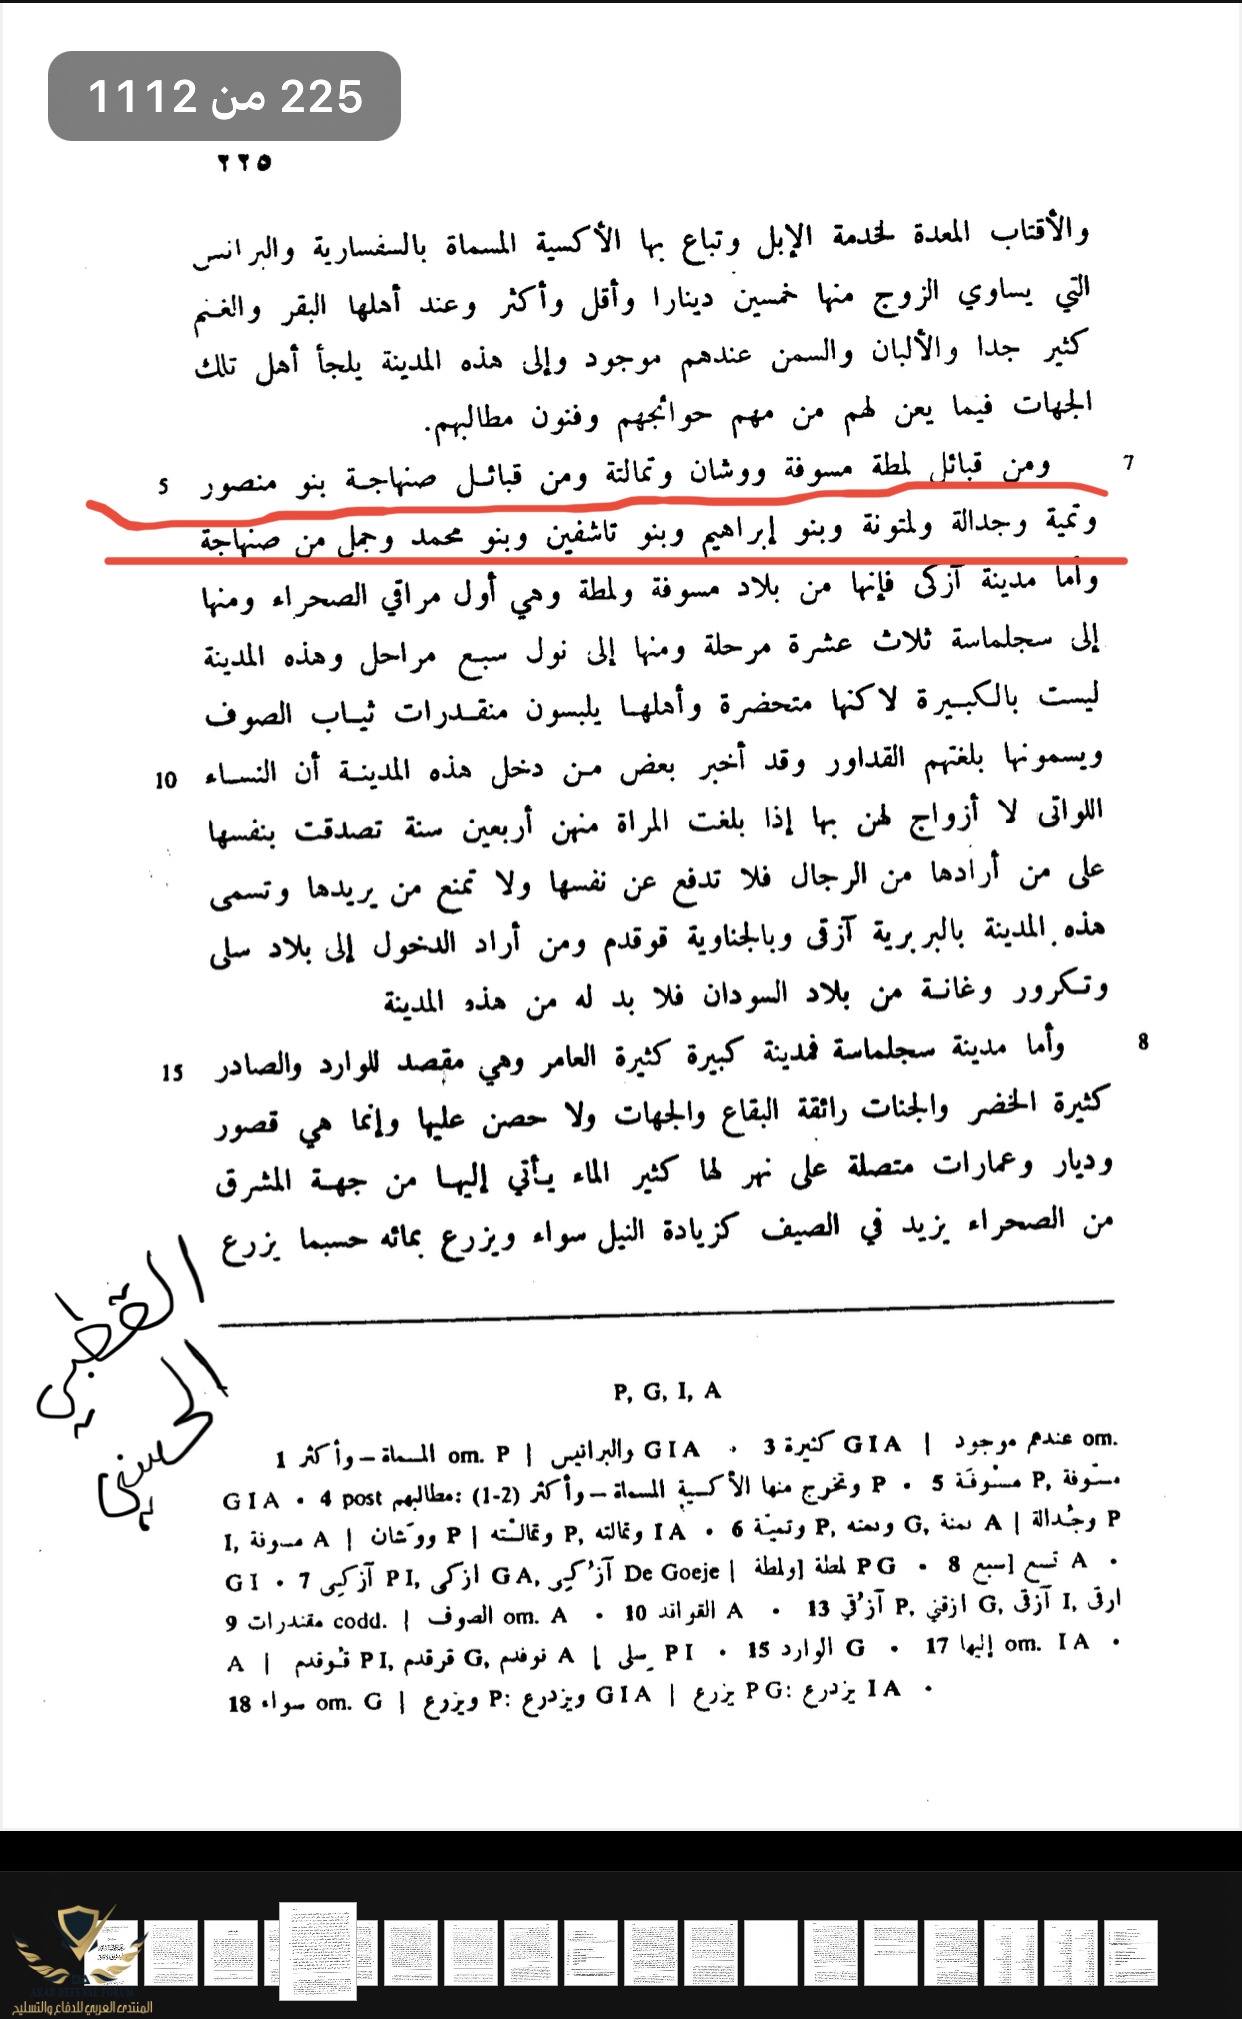 225 من 1112
٢٢٥
والأقتاب المعدة لخدمة الإبل وتباع بها الأكسية المسماة بالسفسارية والبرانس
التي يساوي الزوج منها خمسين دينارا وأقل وأكثر وعند أهلها البقر والغنم
كثير جدا والألبان والسمن عندهم موجود وإلى هذه المدينة يلجأ أهل تلك
الجهات فيما يعن لهم من مهم حوائجهم وفنون مطالبهم.
7 ومن قبائل لمطة مسوفة ووشان وتمالتة ومن قبائل صنهاجة بنو منصور 5
وتمية وجدالة ولمتونة وبنو إبراهيم وبنو تاشفين وبنو محمد وجمل من صنهاجة
وأما مدينة آزكى فإنها من بلاد مسوفة ولمطة وهي أول مراقي الصحراء ومنها
إلى سجلماسة ثلاث عشرة مرحلة ومنها إلى نول سبع مراحل وهذه المدينة
ليست بالكبيرة لاكنها متحضرة وأهلها يلبسون منقدرات ثياب الصوف
ويسمونها بلغتهم القداور وقد أخبر بعض من دخل هذه المدينة أن النساء 10
اللواتى لا أزواج لهن بها إذا بلغت المراة منهن أربعين سنة تصدقت بنفسها
على من أرادها من الرجال فلا تدفع عن نفسها ولا تمنع من يريدها وتسمى
هذه المدينة بالبربرية آزقى وبالجناوية قوقدم ومن أراد الدخول إلى بلاد سلى
وتكرور وغانة من بلاد السودان فلا بد له من هذه المدينة
8 وأما مدينة سجلماسة فمدينة كبيرة كثيرة العامر وهي مقصد للوارد والصادر 15
كثيرة الخضر والجنات رائقة البقاع والجهات ولا حصن عليها وإنما هي قصور
وديار وعمارات متصلة على نهر لها كثير الماء يأتي إليها من جهة المشرق
من الصحراء يزيد في الصيف كزيادة النيل سواء ويزرع بمائه حسبما يزرع
القطبي
الحسني
P, G, I, A
1 المسماة – وأكثر om. P | والبرانيس GIA • 3 كثيرة GIA | عندهم موجود om.
GIA • 4 post مطالبهم: (1-2) وتخرج منها الأكسية المسماة – وأكثر P • 5 مسْوفَة P,
I, مسوفة A | ووَشان P | وتمالتْه P, وتمالته IA • 6 وتميّة P, G, A | وجُدالة P
GI • 7 آزكى PI, ازكى GA, De Goeje | لمطة [ولمطة PG • 8 سبع] تسع A •
9 مقندرات codd. | الصوف om. A • 10 A • 13 P, G, I,
A | PI, قرقدم G, A | سلى PI • 15 الوارد G • 17 إليها om. IA •
18 سواء om. G | ويزرع P: ويزدرع GIA | يزرع PG: يزدرع IA •
المنتدى العربي للدفاع والتسليح